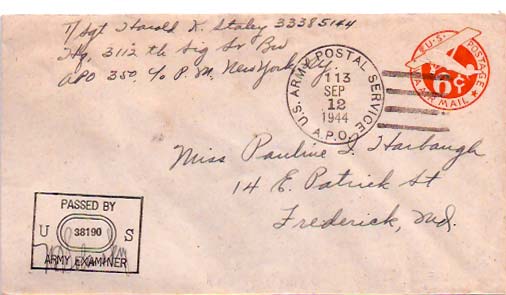 T/Sgt Harold K. Staley 33385144
Hq. 3112 th Sig Sv Bn
APO 350, c/o P.M. New York, N.Y.
U.S. ARMY POSTAL SERVICE
113
SEP
12
1944
A.P.O.
U.S. POSTAGE
6¢
VIA AIR MAIL
Miss Pauline I. Harbaugh
14 E. Patrick St
Frederick, Md.
PASSED BY
U 38190 S
ARMY EXAMINER